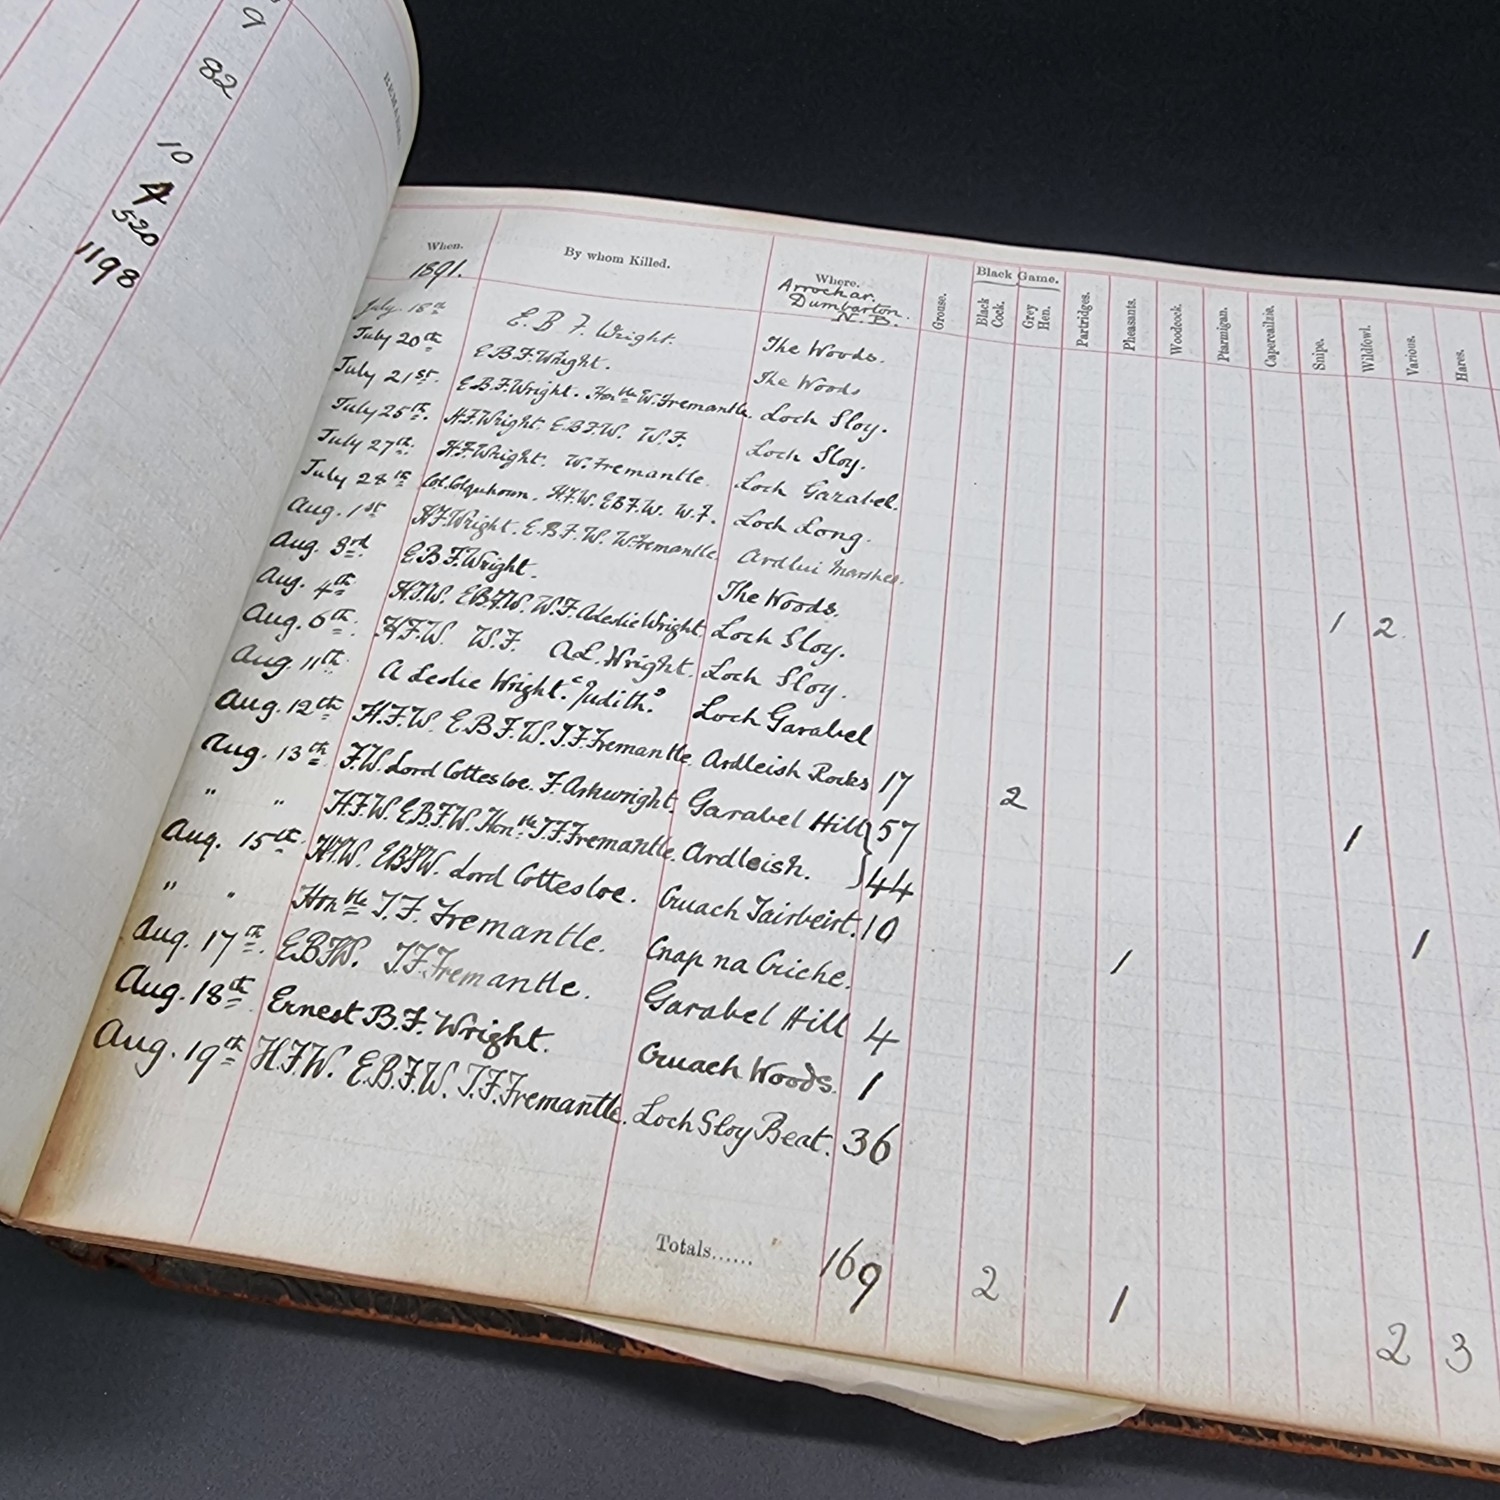 9
82
10
4
520
1198
REMARKS
When. By whom Killed. Where. Grouse. Black Game. Black Cock. Grey Hen. Partridges. Pheasants. Woodcock. Ptarmigan. Capercailzie. Snipe. Wildfowl. Various. Hares.
1891. Arrochar. Dumbarton. N.B.
July 18th E. B. F. Wright. The Woods.
July 20th E.B.F. Wright. The Woods
July 21st. E.B.F. Wright. Honble W. Fremantle. Loch Sloy.
July 25th. H.F. Wright. E.B.F.W. W.F. Loch Sloy.
July 27th. H.F. Wright. W. Fremantle. Loch Garabel.
July 28th Col. Colquhoun. H.F.W. E.B.F.W. W.F. Loch Long.
Aug. 1st H.F. Wright. E.B.F.W. W. Fremantle. Ardlui Marshes. 1 2
Aug. 3rd. E.B.F. Wright. The Woods.
Aug. 4th H.F.W. E.B.F.W. W.F. A Leslie Wright. Loch Sloy.
Aug. 6th. H.F.W. W.F. A.L. Wright. Loch Sloy.
Aug. 11th. A Leslie Wright. "Judith." Loch Garabel
Aug. 12th H.F.W. E.B.F.W. T.F. Fremantle. Ardleish Rocks 17 2
Aug. 13th F.W. Lord Cottesloe. F. Arkwright. Garabel Hill 57 1
" " H.F.W. E.B.F.W. Honble T.F. Fremantle. Ardleish. 44
Aug. 15th. H.F.W. E.B.F.W. Lord Cottesloe. Cruach Tairbeirt. 10 1 1
" " Honble T. F. Fremantle. Cnap na Criche.
Aug. 17th. E.B.F.W. T.F. Fremantle. Garabel Hill 4
Aug. 18th Ernest B. F. Wright. Cruach Woods. 1
Aug. 19th H.F.W. E.B.F.W. T.F. Fremantle. Loch Sloy Beat. 36
Totals...... 169 2 1 2 3